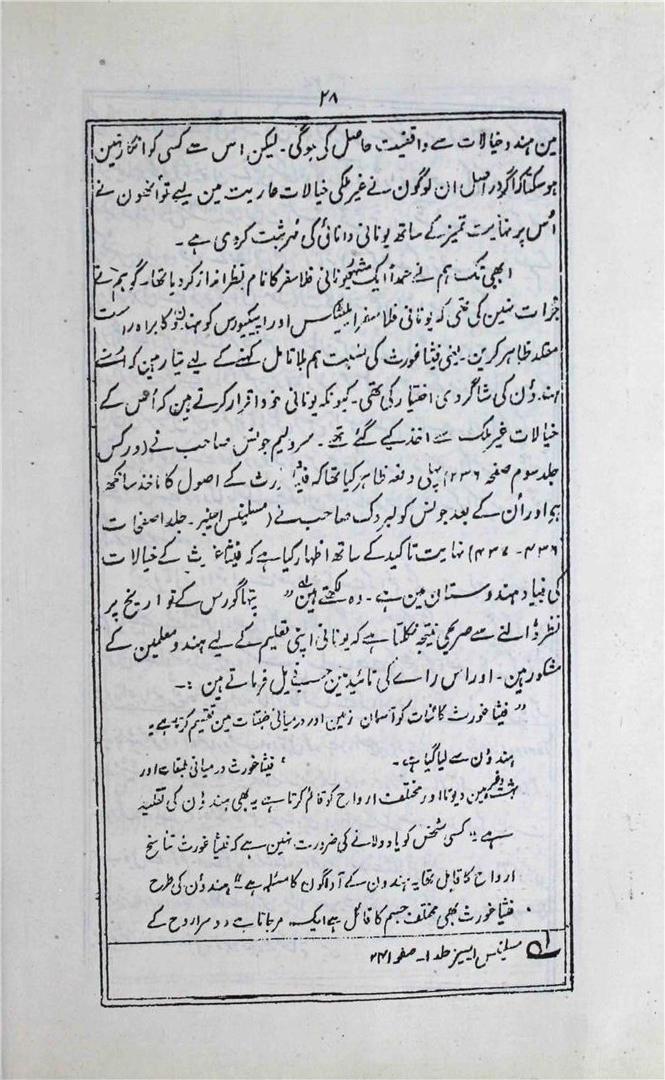 ۲۸
مین ہندو خیالات سے واقفیت حاصل کی ہوگی۔ لیکن اس سے کسی کو انکار نہین
ہوسکتا کہ اگر دراصل ان لوگون نے غیر ملکی خیالات عاریت مین لیے تو اُنھون نے
اُس پر نہایت تمیز کے ساتھ یونانی دانائی کی مہر ثبت کر دی ہے۔
ابھی تک ہم نے عمداً ایک مشہور یونانی فلاسفر کا نام نظر انداز کر دیا تھا۔ گو ہم نے
جرات نہین کی تھی کہ یونانی فلاسفر اور ایپیکیورس کو ہندوؤن کا براہ راست
مقلد ظاہر کرین۔ یعنی فیثاغورث کی نسبت ہم بلا تامل کہنے کے لیے تیار ہین کہ اُسنے
ہندوؤن کی شاگردی اختیار کی تھی۔ کیونکہ یونانی خود اقرار کرتے ہین کہ اُس کے
خیالات غیر ملک سے اخذ کیے گئے تھے۔ سر ولیم جونس صاحب نے (ورکس
جلد سوم صفحہ ۲۳۶) پہلی دفعہ ظاہر کیا تھا کہ فیثاغورث کے اصول کا ماخذ سانکھ
ہے اور اُن کے بعد جونس کولبروک صاحب نے (مسلینس ایسیز۔ جلد ا صفحات
۴۳۶-۴۳۷) نہایت تاکید کے ساتھ اظہار کیا ہے کہ فیثاغورث کے خیالات
کی بنیاد ہندوستان مین ہے۔ وہ لکھتے ہین لہ ”پیتھاگورس کے تواریخ پر
نظر ڈالنے سے صریحی نتیجہ نکلتا ہے کہ یونانی اپنی تعلیم کے لیے ہندو معلمین کے
مشکور ہین۔ اور اس رائے کی تائید مین حسب ذیل فرماتے ہین :۔
”فیثاغورث کائنات کو آسمان زمین اور درمیانی طبقات مین تقسیم کرتا ہے یہ
ہندوؤن سے لیا گیا ہے۔ فیثاغورث درمیانی طبقات اور
بہشت مین دیوتا اور مختلف ارواح کو قائم کرتا ہے یہ بھی ہندوؤن کی تقلید
ہے“ کسی شخص کو یاد دلانے کی ضرورت نہین ہے کہ فیثاغورث تناسخ
ارواح کا قابل تھا یہ ہندوؤن کے آواگون کا مسئلہ ہے“ ہندوؤن کی طرح
فیثاغورث بھی مختلف جسم کا قائل ہے ایک مرجاتا ہے دوسرا روح کے
لہ مسلینس ایسیز جلد ۱۔ صفحہ ۲۴۱